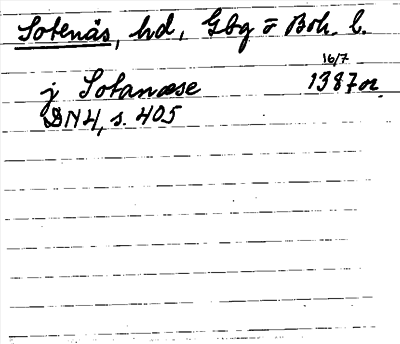 Sotenäs, hd, Gbg o Boh. l.
16/7
j Sotanæse 1387 or.
DN 4, s. 405